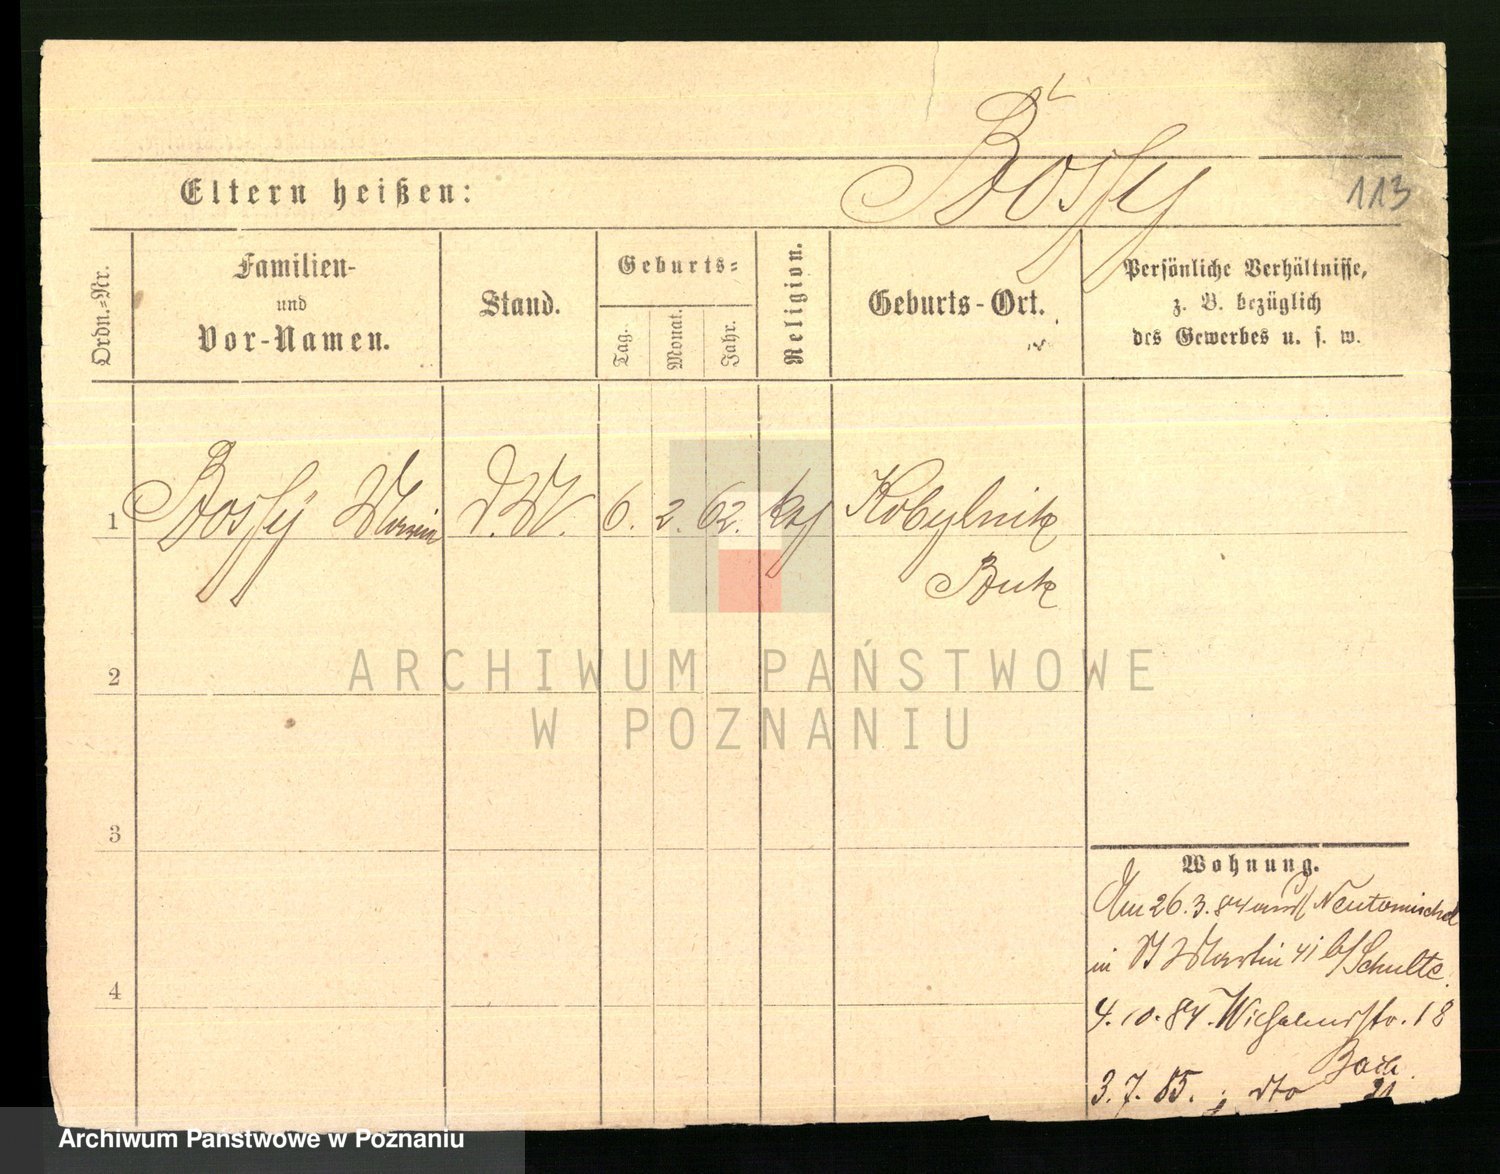 Bossy
Eltern heißen:
113
Ordn.-Nr.
Familien-
und
Vor-Namen.
Stand.
Geburts-
Tag.
Monat.
Jahr.
Religion.
Geburts-Ort.
Persönliche Verhältnisse,
z. B. bezüglich
des Gewerbes u. s. w.
1 Bossÿ 6. 2. 62. kth Kobylnik
Buk
2
3
4
Wohnung.
Am 26.3.84 aus Neutomischel
in St Martin 41 b/ Schultz.
4.10.84. Wilhelmstr. 18
3.7.85. dto 21
ARCHIWUM PAŃSTWOWE
W POZNANIU
Archiwum Państwowe w Poznaniu